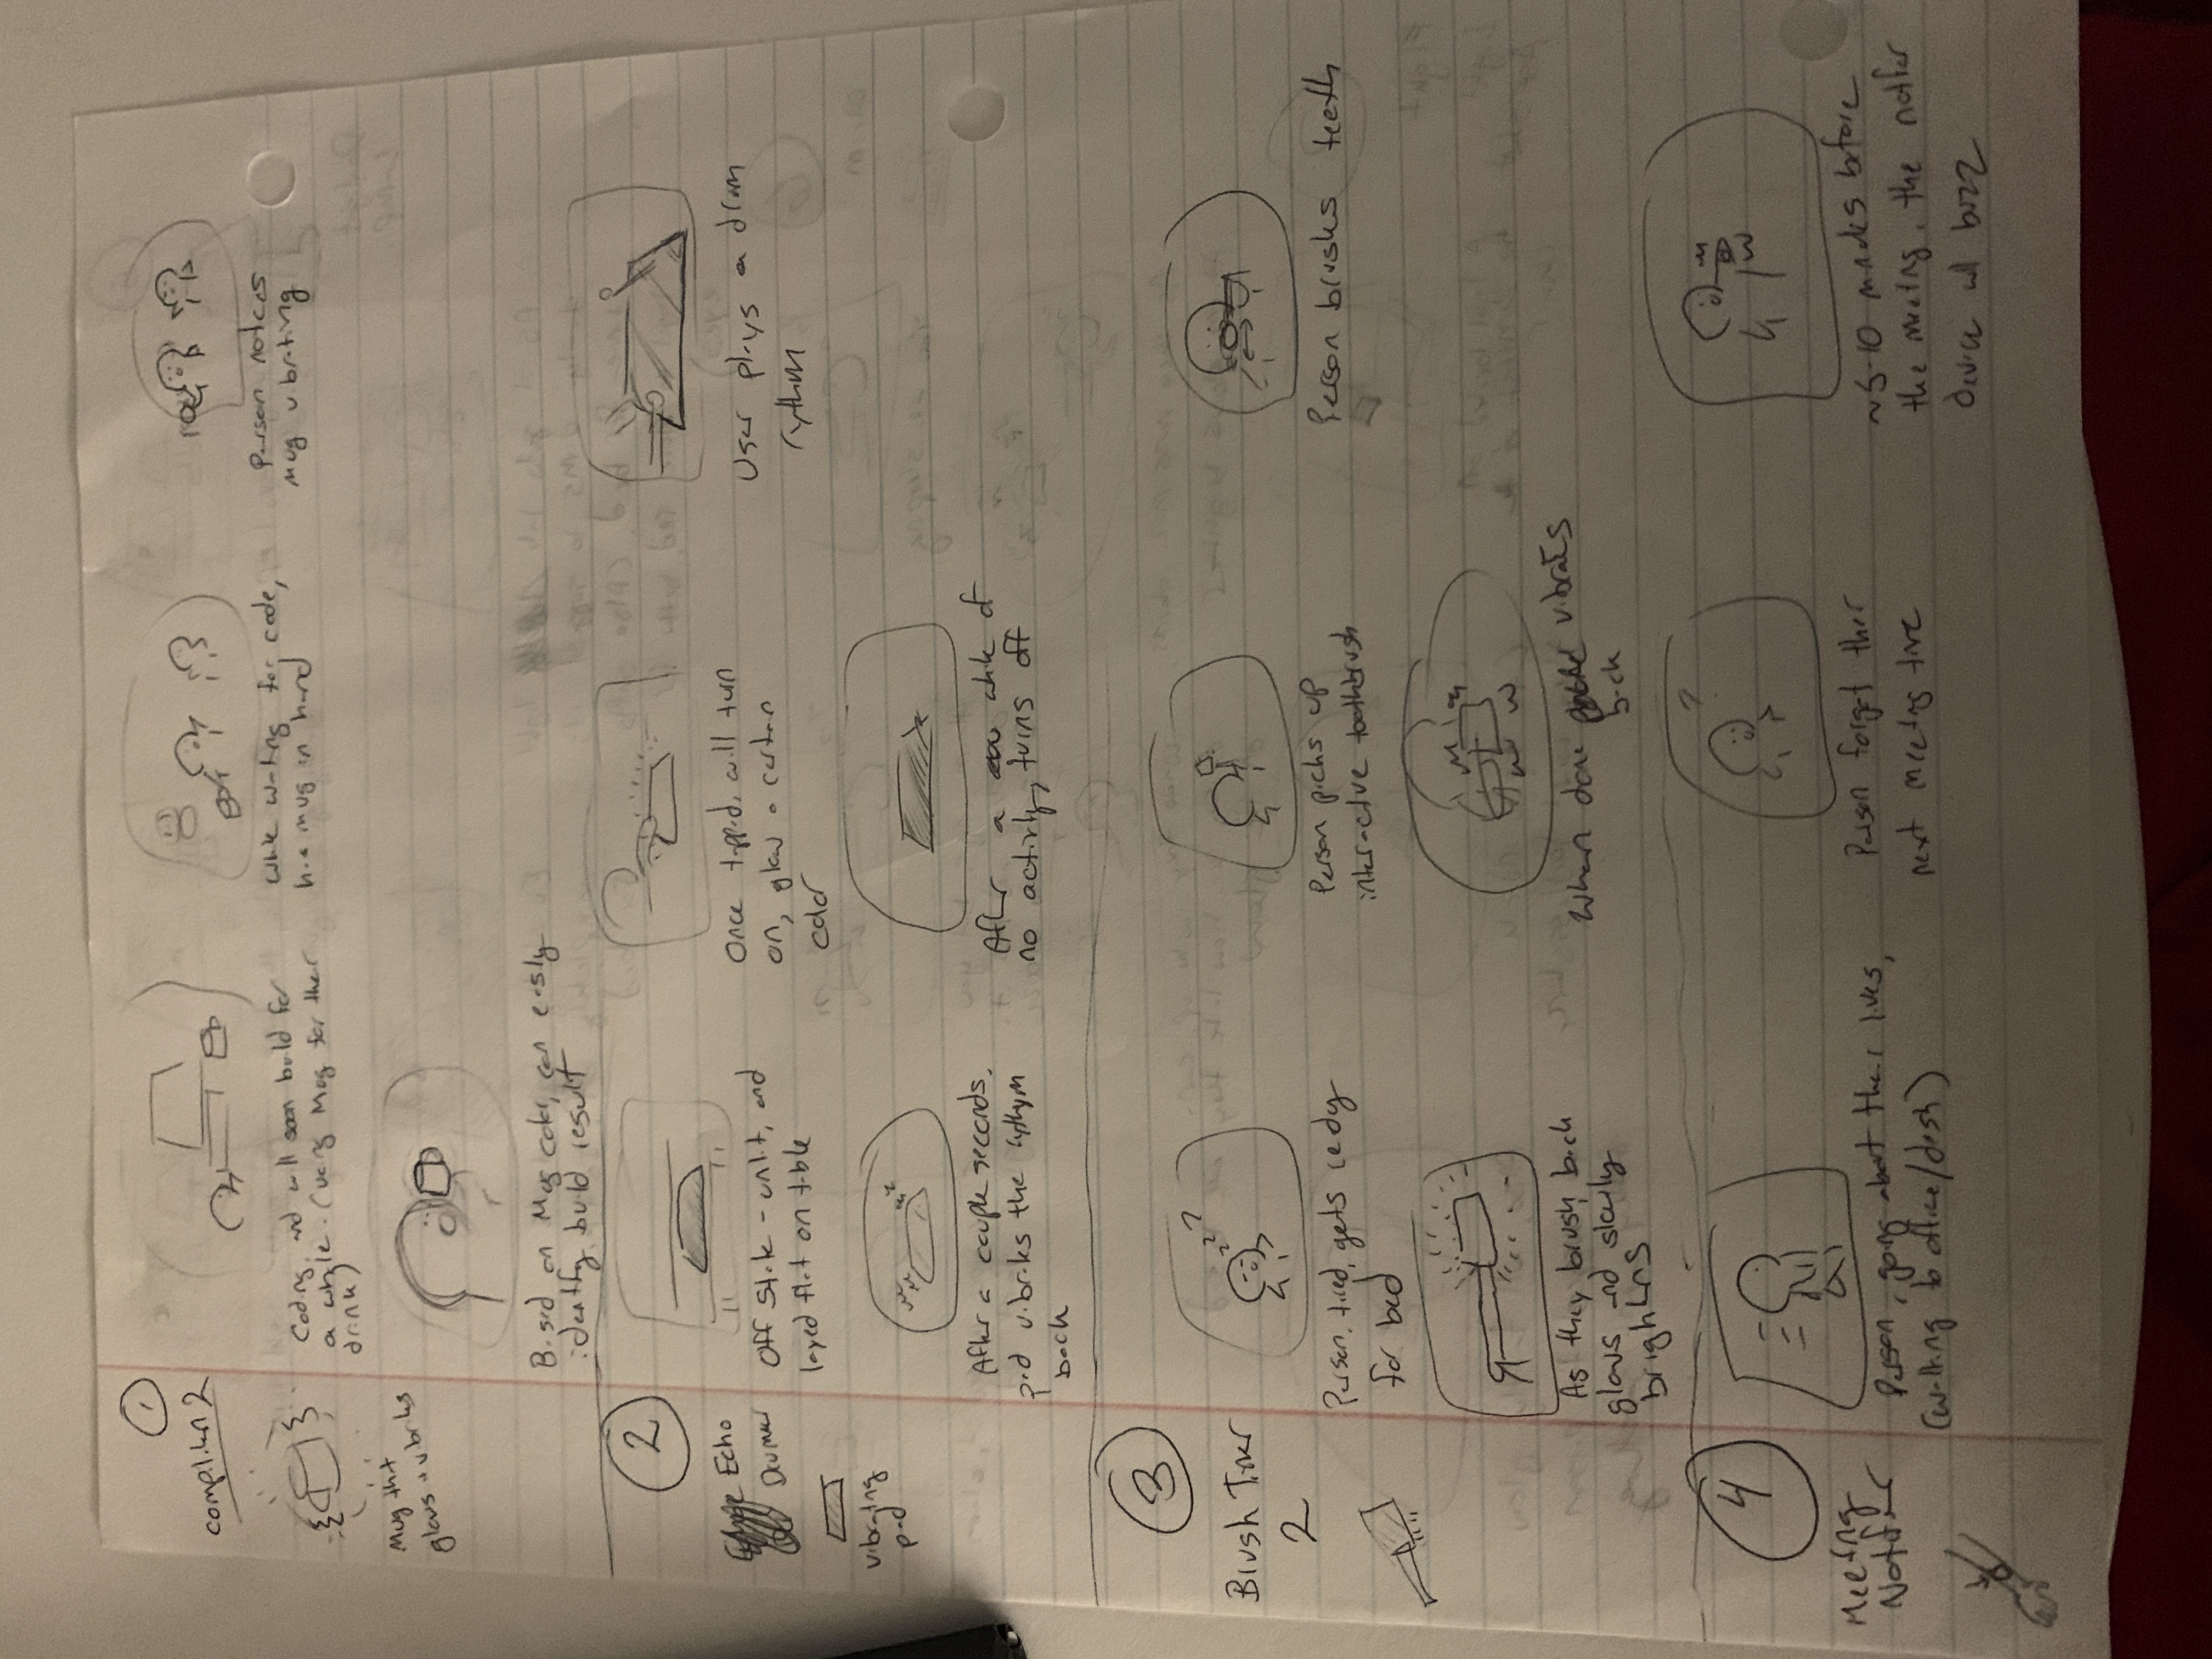 1
compilation 2
Mug that
glows + vibrates
Coding, and will soon build for
a while. (using Mug for their
drink)
while waiting for code,
has mug in hand
Person notices
mug vibrating
Based on Mug color, can easily
identify build result
2
Echo
Drummer
vibrating
pad
Off state - unlit, and
layed flat on table
Once tapped, will turn
on, glow a certain
color
User plays a drum
rythim
After a couple seconds,
pad vibrates the rythym
back
After a while of
no activity, turns off
3
Brush Timer
2
Person, tired, gets ready
for bed
Person picks up
interactive toothbrush
Person brushes teeth
As they brush, back
glows and slowly
brightens
When done vibrates
back
4
Meeting
Notifier
Person, going about their lives,
(walking to office/desk)
Person forget their
next meeting time
~5-10 minutes before
the meeting, the notifier
device will buzz